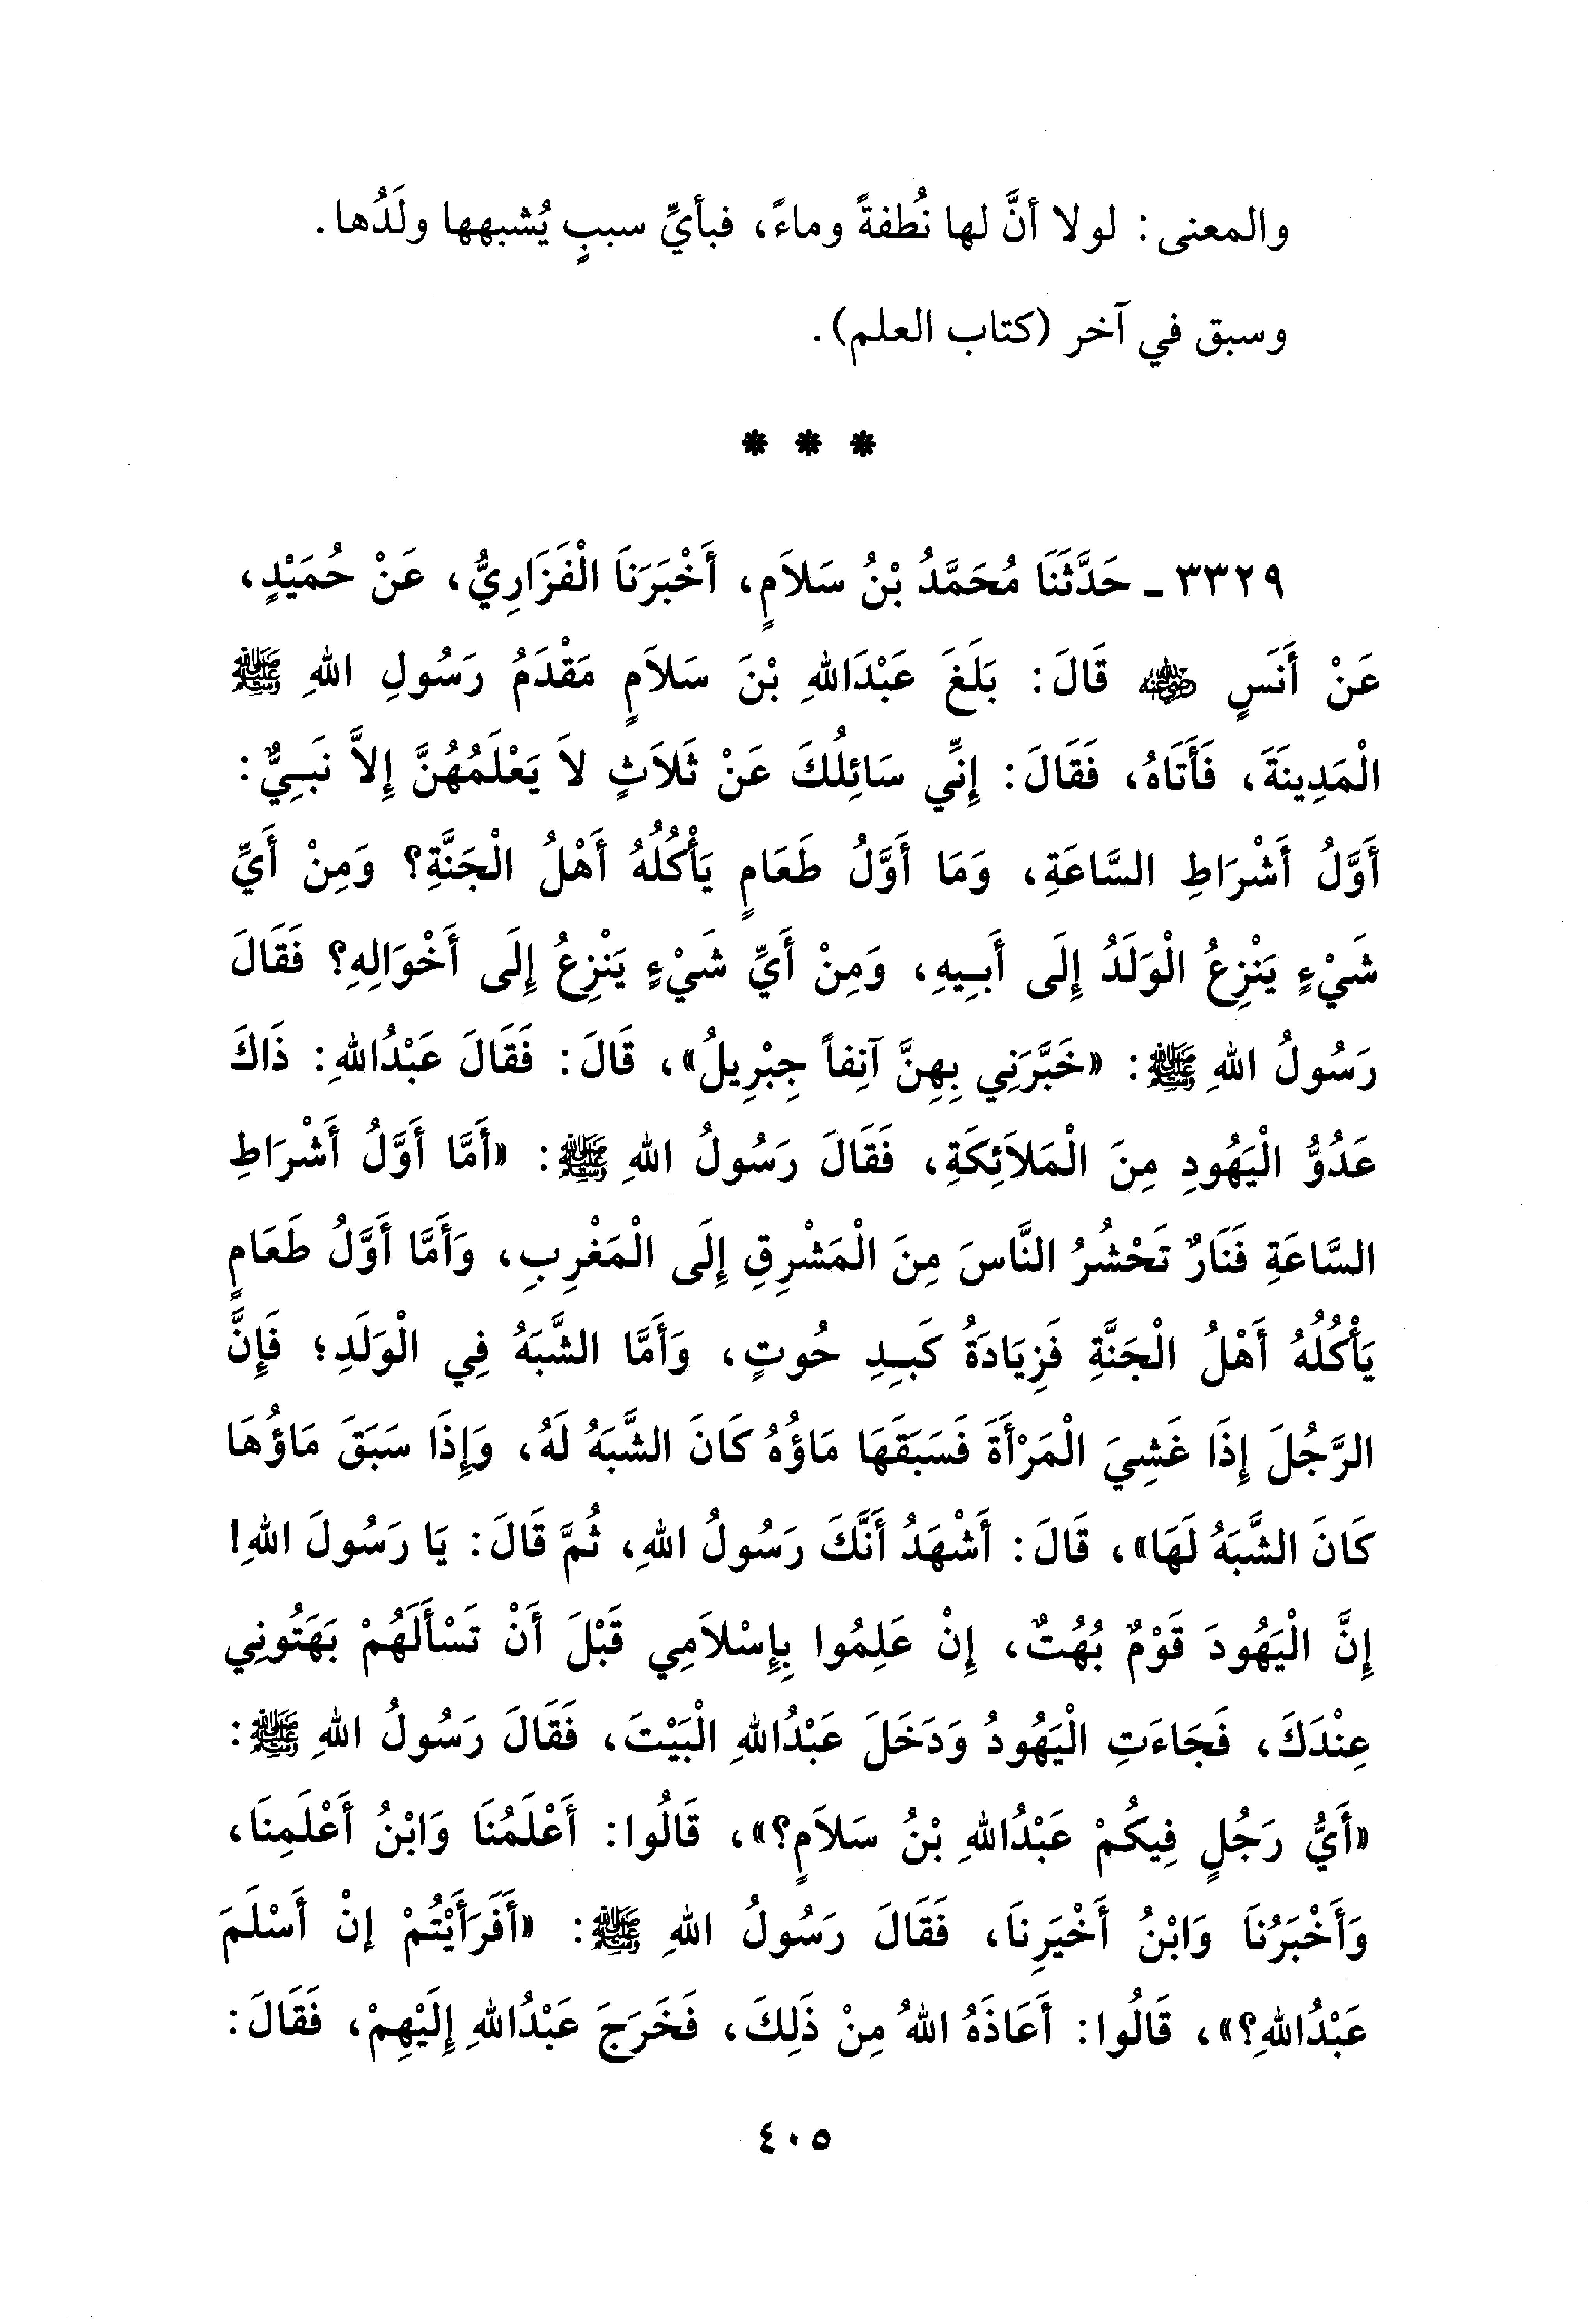 والمعنى: لولا أنَّ لها نُطفةً وماءً، فبأيِّ سببٍ يُشبهها ولَدُها.
وسبق في آخر (كتاب العلم).
* * *
٣٣٢٩ - حَدَّثَنَا مُحَمَّدُ بْنُ سَلاَمٍ، أَخْبَرَنَا الْفَزَارِيُّ، عَنْ حُمَيْدٍ،
عَنْ أَنَسٍ رضي الله عنه قَالَ: بَلَغَ عَبْدَاللهِ بْنَ سَلاَمٍ مَقْدَمُ رَسُولِ اللهِ ﷺ
الْمَدِينَةَ، فَأَتَاهُ، فَقَالَ: إِنِّي سَائِلُكَ عَنْ ثَلاَثٍ لاَ يَعْلَمُهُنَّ إِلاَّ نَبِيٌّ:
أَوَّلُ أَشْرَاطِ السَّاعَةِ، وَمَا أَوَّلُ طَعَامٍ يَأْكُلُهُ أَهْلُ الْجَنَّةِ؟ وَمِنْ أَيِّ
شَيْءٍ يَنْزِعُ الْوَلَدُ إِلَى أَبِيهِ، وَمِنْ أَيِّ شَيْءٍ يَنْزِعُ إِلَى أَخْوَالِهِ؟ فَقَالَ
رَسُولُ اللهِ ﷺ: «خَبَّرَنِي بِهِنَّ آنِفاً جِبْرِيلُ»، قَالَ: فَقَالَ عَبْدُاللهِ: ذَاكَ
عَدُوُّ الْيَهُودِ مِنَ الْمَلاَئِكَةِ، فَقَالَ رَسُولُ اللهِ ﷺ: «أَمَّا أَوَّلُ أَشْرَاطِ
السَّاعَةِ فَنَارٌ تَحْشُرُ النَّاسَ مِنَ الْمَشْرِقِ إِلَى الْمَغْرِبِ، وَأَمَّا أَوَّلُ طَعَامٍ
يَأْكُلُهُ أَهْلُ الْجَنَّةِ فَزِيَادَةُ كَبِدِ حُوتٍ، وَأَمَّا الشَّبَهُ فِي الْوَلَدِ؛ فَإِنَّ
الرَّجُلَ إِذَا غَشِيَ الْمَرْأَةَ فَسَبَقَهَا مَاؤُهُ كَانَ الشَّبَهُ لَهُ، وَإِذَا سَبَقَ مَاؤُهَا
كَانَ الشَّبَهُ لَهَا»، قَالَ: أَشْهَدُ أَنَّكَ رَسُولُ اللهِ، ثُمَّ قَالَ: يَا رَسُولَ اللهِ!
إِنَّ الْيَهُودَ قَوْمٌ بُهُتٌ، إِنْ عَلِمُوا بِإِسْلاَمِي قَبْلَ أَنْ تَسْأَلَهُمْ بَهَتُونِي
عِنْدَكَ، فَجَاءَتِ الْيَهُودُ وَدَخَلَ عَبْدُاللهِ الْبَيْتَ، فَقَالَ رَسُولُ اللهِ ﷺ:
«أَيُّ رَجُلٍ فِيكُمْ عَبْدُاللهِ بْنُ سَلاَمٍ؟»، قَالُوا: أَعْلَمُنَا وَابْنُ أَعْلَمِنَا،
وَأَخْبَرُنَا وَابْنُ أَخْيَرِنَا، فَقَالَ رَسُولُ اللهِ ﷺ: «أَفَرَأَيْتُمْ إنْ أَسْلَمَ
عَبْدُاللهِ؟»، قَالُوا: أَعَاذَهُ اللهُ مِنْ ذَلِكَ، فَخَرَجَ عَبْدُاللهِ إِلَيْهِمْ، فَقَالَ:
٤٠٥